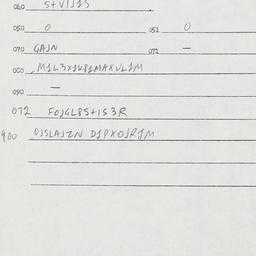 060 S+VIJ1S
050 0 052 0
070 GAJN 072 —
080 M1L3X1K81MAXVL1M
090 —
072 FOJGL8S+1S3R
900 OJSLAJZN D1PXOJR1M